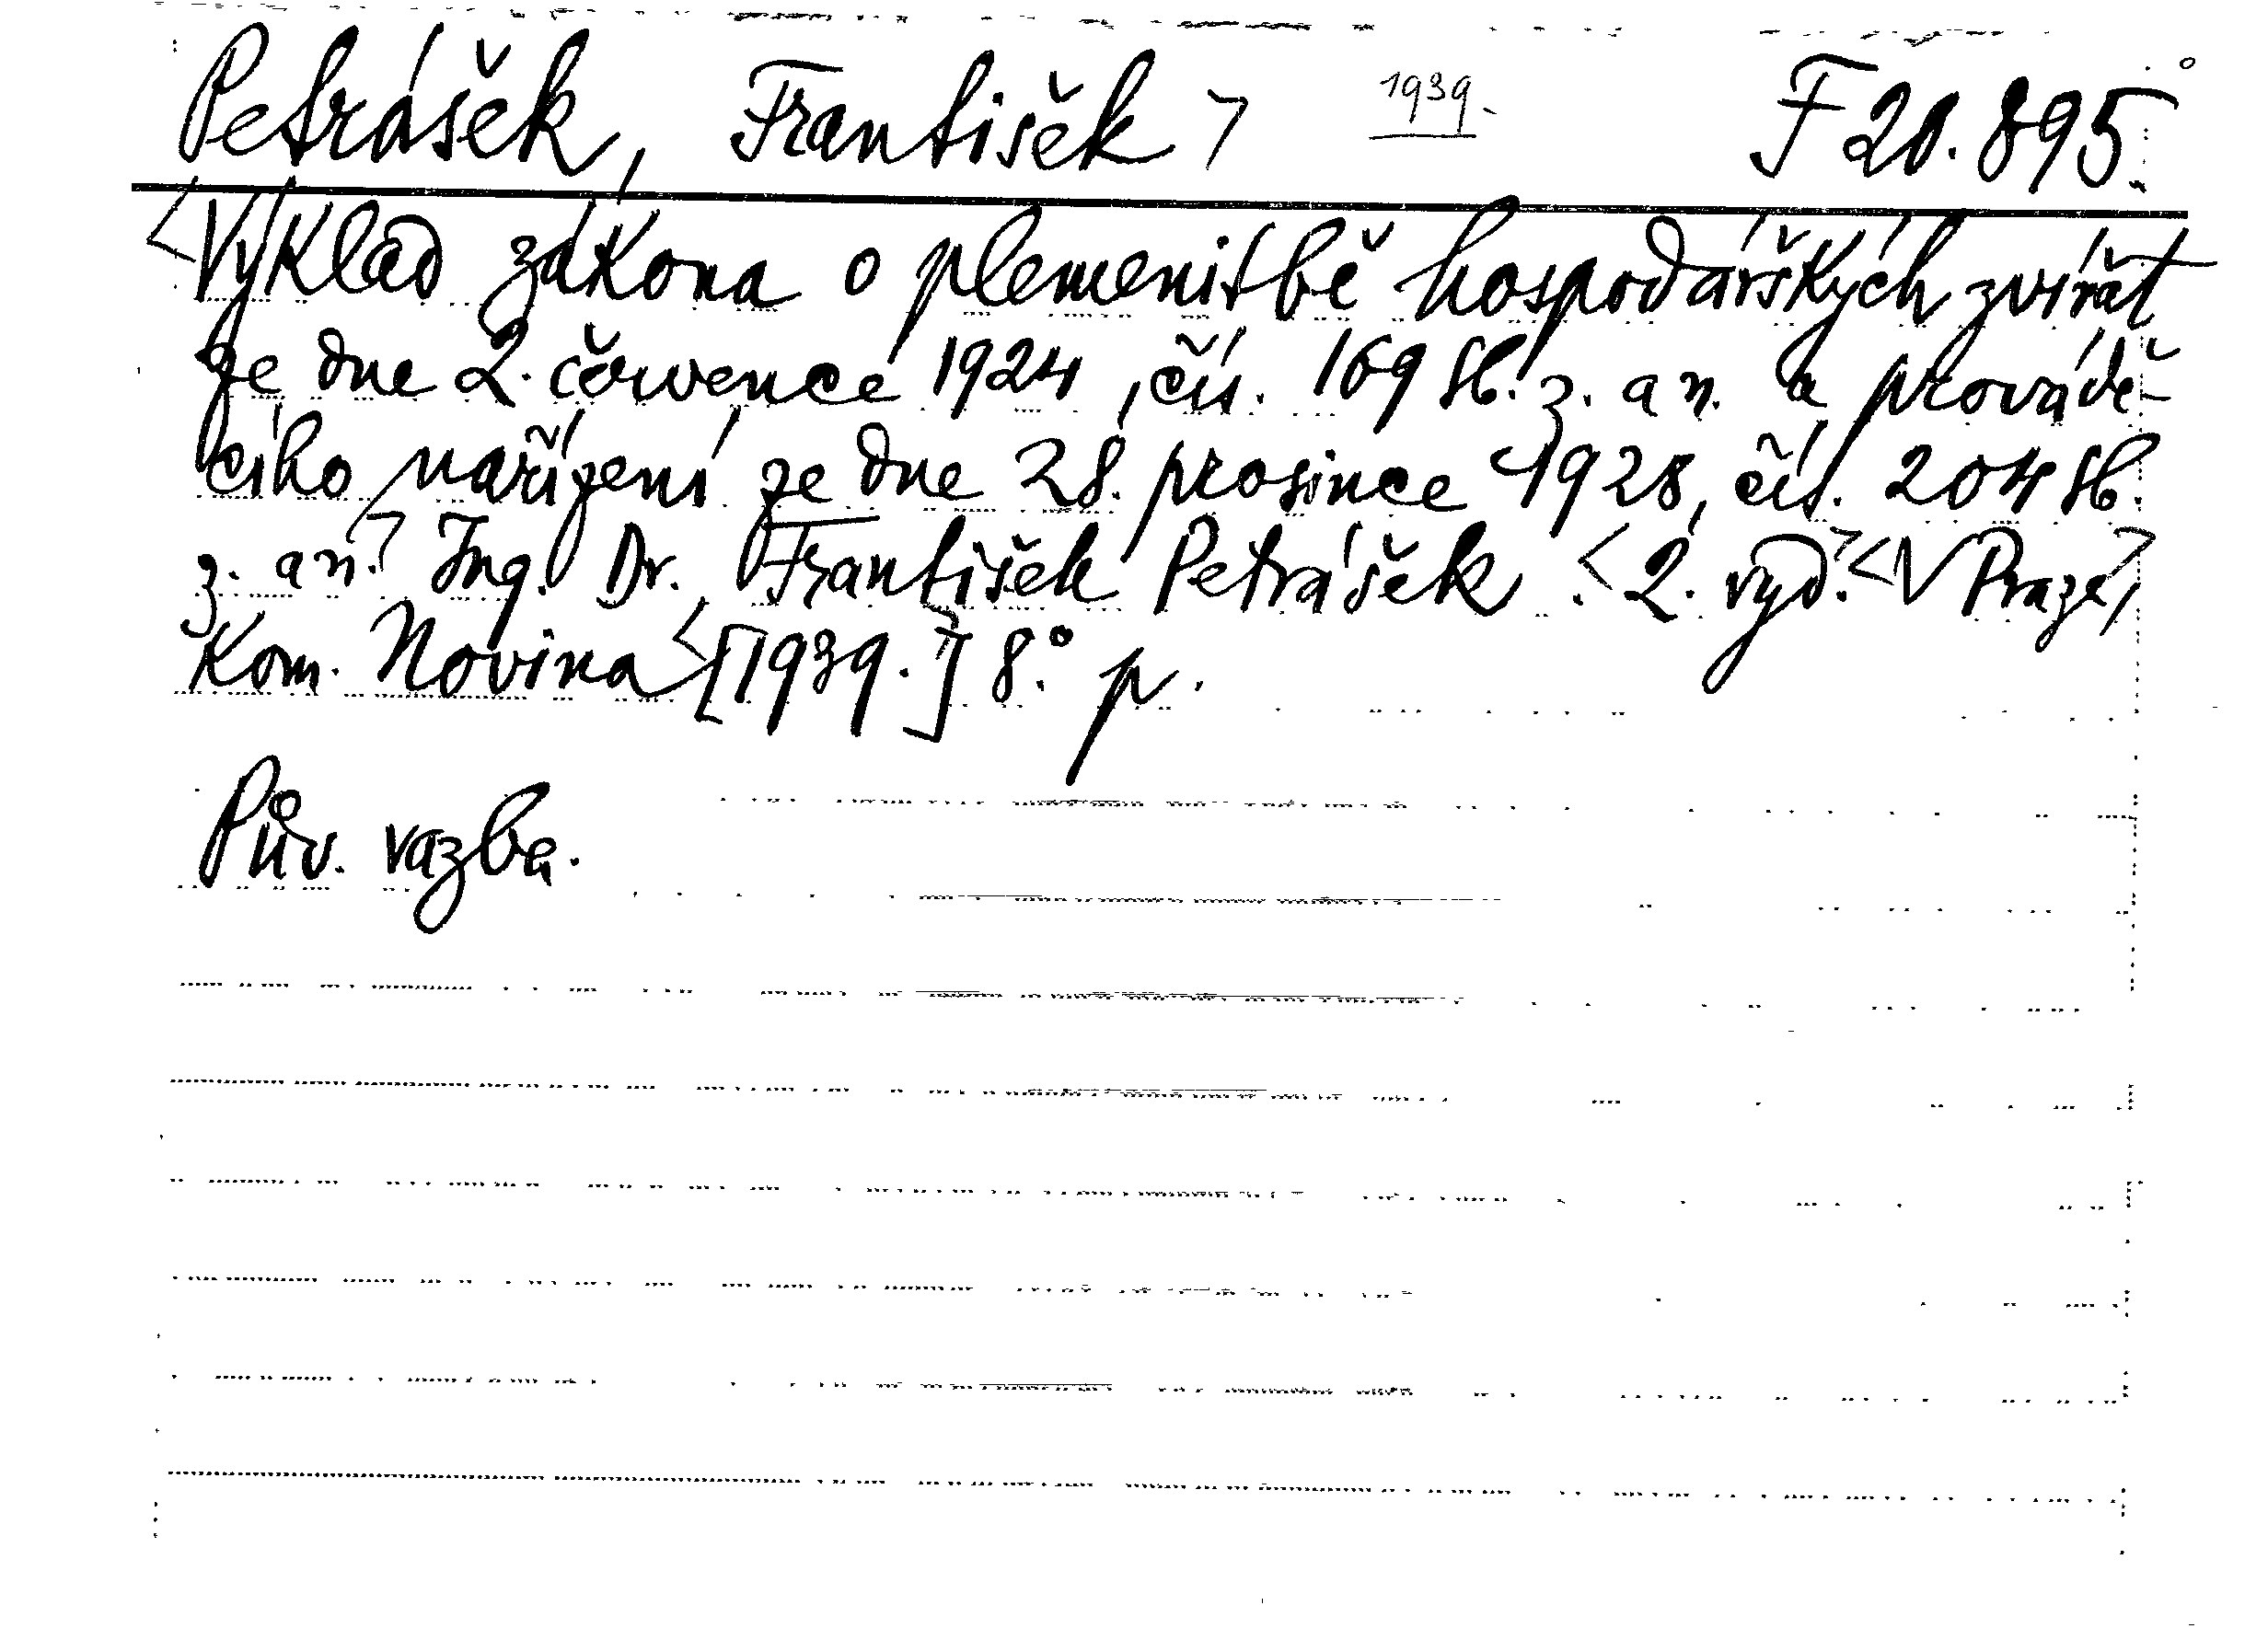 Petrášek, František > 1939. F 20.895.
<Výklad zákona o plemenitbě hospodářských zvířat
ze dne 2. července 1924, čís. 169 Sb. z. a n. a provádě-
cího nařízení ze dne 28. prosince 1928, čís. 204 Sb.
z. a n.> Ing. Dr. František Petrášek. <2. vyd.> <V Praze,>
Kom. Novina <[1939.]> 8°. p.
Pův. vazba.